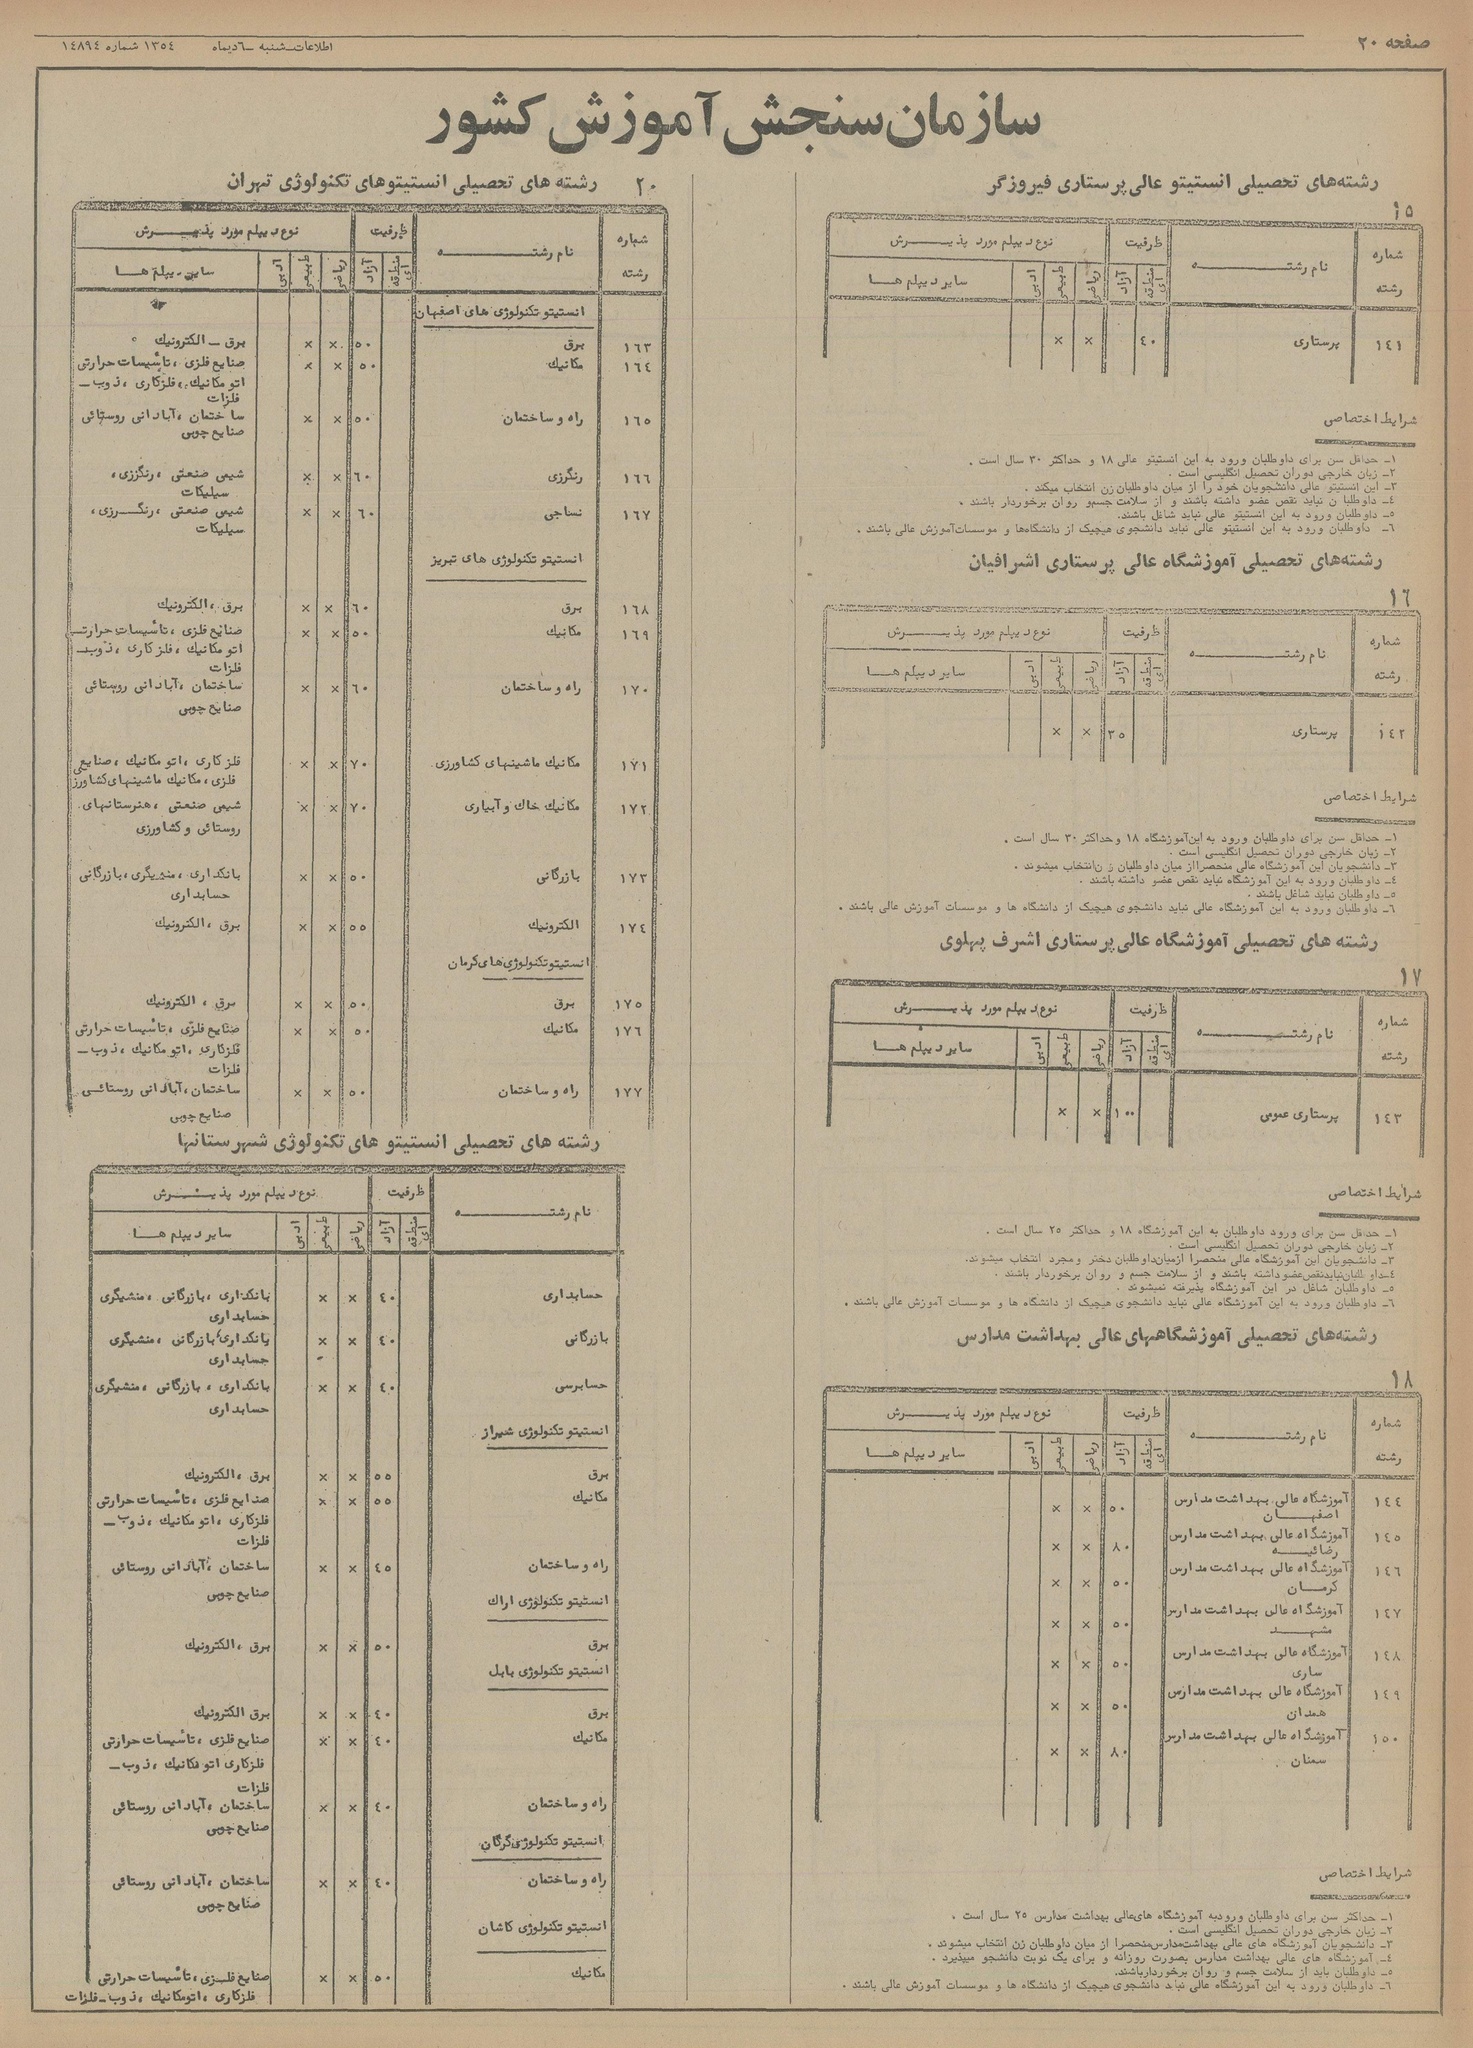 صفحه ۲۰
اطلاعات ـ شنبه ـ ۶ دیماه ۱۳۵٤ شماره ۱٤۸۹٤
سازمان سنجش آموزش کشور
رشته‌های تحصیلی انستیتو عالی پرستاری فیروزگر
۱۵
شماره رشته نام رشته ظرفیت نوع دیپلم مورد پذیرش
منطقه ای آزاد ریاضی طبیعی ادبی سایر دیپلم ها
۱٤۱ پرستاری ٤۰ × ×
شرایط اختصاصی
۱ـ حداقل سن برای داوطلبان ورود به این انستیتو عالی ۱۸ و حداکثر ۳۰ سال است .
۲ـ زبان خارجی دوران تحصیل انگلیسی است .
۳ـ این انستیتو عالی دانشجویان خود را از میان داوطلبان زن انتخاب میکند .
٤ـ داوطلبا ن نباید نقص عضو داشته باشند و از سلامت جسم‌و روان برخوردار باشند .
۵ـ داوطلبان ورود به این انستیتو عالی نباید شاغل باشند.
۶ـ داوطلبان ورود به این انستیتو عالی نباید دانشجوی هیچیک از دانشگاه‌ها و موسسات‌آموزش عالی باشند .
رشته‌های تحصیلی آموزشگاه عالی پرستاری اشرافیان
۱۶
شماره رشته نام رشته ظرفیت نوع دیپلم مورد پذیرش
منطقه ای آزاد ریاضی طبیعی ادبی سایر دیپلم ها
۱٤۲ پرستاری ۳۵ × ×
شرایط اختصاصی
۱ـ حداقل سن برای داوطلبان ورود به این‌آموزشگاه ۱۸ وحداکثر ۳۰ سال است .
۲ـ زبان خارجی دوران تحصیل انگلیسی است .
۳ـ دانشجویان این آموزشگاه عالی منحصرااز میان داوطلبان ز ن‌انتخاب میشوند .
٤ـ داوطلبان ورود به این آموزشگاه نباید نقص عضو داشته باشند .
۵ـ داوطلبان نباید شاغل باشند .
۶ـ داوطلبان ورود به این آموزشگاه عالی نباید دانشجوی هیچیک از دانشگاه ها و موسسات آموزش عالی باشند .
رشته های تحصیلی آموزشگاه عالی پرستاری اشرف پهلوی
۱۷
شماره رشته نام رشته ظرفیت نوع دیپلم مورد پذیرش
منطقه ای آزاد ریاضی طبیعی ادبی سایر دیپلم ها
۱٤۳ پرستاری عمومی ۱۰۰ × ×
شرایط اختصاصی
۱ـ حداقل سن برای ورود داوطلبان به این آموزشگاه ۱۸ و حداکثر ۲۵ سال است .
۲ـ زبان خارجی دوران تحصیل انگلیسی است .
۳ـ دانشجویان این آموزشگاه عالی منحصرا ازمیان‌داوطلبان دختر ومجرد انتخاب میشوند.
٤ـ داوطلبان‌نبایدنقص‌عضوداشته باشند و از سلامت جسم و روان برخوردار باشند .
۵ـ داوطلبان شاغل در این آموزشگاه پذیرفته نمیشوند .
۶ـ داوطلبان ورود به این آموزشگاه عالی نباید دانشجوی هیچیک از دانشگاه ها و موسسات آموزش عالی باشند .
رشته‌های تحصیلی آموزشگاههای عالی بهداشت مدارس
۱۸
شماره رشته نام رشته ظرفیت نوع دیپلم مورد پذیرش
منطقه ای آزاد ریاضی طبیعی ادبی سایر دیپلم ها
۱٤٤ آموزشگاه عالی بهداشت مدارس ۵۰ × ×
اصفهان
۱٤۵ آموزشگاه عالی بهداشت مدارس ۸۰ × ×
رضائیه
۱٤۶ آموزشگاه عالی بهداشت مدارس ۵۰ × ×
کرمان
۱٤۷ آموزشگاه عالی بهداشت مدارس ۵۰ × ×
مشهد
۱٤۸ آموزشگاه عالی بهداشت مدارس ۵۰ × ×
ساری
۱٤۹ آموزشگاه عالی بهداشت مدارس ۵۰ × ×
همدان
۱۵۰ آموزشگاه عالی بهداشت مدارس ۸۰ × ×
سمنان
شرایط اختصاصی
۱ـ حداکثر سن برای داوطلبان ورودبه آموزشگاه های‌عالی بهداشت مدارس ۲۵ سال است .
۲ـ زبان خارجی دوران تحصیل انگلیسی است .
۳ـ دانشجویان آموزشگاه های عالی بهداشت‌مدارس‌منحصرا از میان داوطلبان زن انتخاب میشوند .
٤ـ آموزشگاه های عالی بهداشت مدارس بصورت روزانه و برای یک نوبت دانشجو میپذیرد .
۵ـ داوطلبان باید از سلامت جسم و روان برخوردارباشند.
۶ـ داوطلبان ورود به این آموزشگاه عالی نباید دانشجوی هیچیک از دانشگاه ها و موسسات آموزش عالی باشند .
۲۰ رشته های تحصیلی انستیتوهای تکنولوژی تهران
شماره رشته نام رشته ظرفیت نوع دیپلم مورد پذیرش
منطقه ای آزاد ریاضی طبیعی ادبی سایر دیپلم ها
انستیتو تکنولوژی های اصفهان
۱۶۳ برق ۵۰ × × برق ـ الکترونیک
۱۶٤ مکانیک ۵۰ × × صنایع فلزی ، تاٴسیسات حرارتی
اتو مکانیک ، فلزکاری ، ذوب ـ
فلزات
۱۶۵ راه و ساختمان ۵۰ × × ساختمان ، آبادانی روستائی
صنایع چوبی
۱۶۶ رنگرزی ۶۰ × × شیمی صنعتی ، رنگرزی ،
سیلیکات
۱۶۷ نساجی ۶۰ × × شیمی صنعتی ، رنگرزی ،
سیلیکات
انستیتو تکنولوژی های تبریز
۱۶۸ برق ۶۰ × × برق ، الکترونیک
۱۶۹ مکانیک ۵۰ × × صنایع فلزی ، تاٴسیسات حرارتی
اتو مکانیک ، فلزکاری ، ذوب ـ
فلزات
۱۷۰ راه و ساختمان ۶۰ × × ساختمان ، آبادانی روستائی
صنایع چوبی
۱۷۱ مکانیک ماشینهای کشاورزی ۷۰ × × فلزکاری ، اتو مکانیک ، صنایع
فلزی ، مکانیک ماشینهای کشاورزی
۱۷۲ مکانیک خاک و آبیاری ۷۰ × × شیمی صنعتی ، هنرستانهای
روستائی و کشاورزی
۱۷۳ بازرگانی ۵۰ × × بانکداری ، منشیگری ، بازرگانی
حسابداری
۱۷٤ الکترونیک ۵۵ × × برق ، الکترونیک
انستیتو تکنولوژی های کرمان
۱۷۵ برق ۵۰ × × برق ، الکترونیک
۱۷۶ مکانیک ۵۰ × × صنایع فلزی ، تاٴسیسات حرارتی
فلزکاری ، اتو مکانیک ، ذوب ـ
فلزات
۱۷۷ راه و ساختمان ۵۰ × × ساختمان ، آبادانی روستائی
صنایع چوبی
رشته های تحصیلی انستیتو های تکنولوژی شهرستانها
نام رشته ظرفیت نوع دیپلم مورد پذیرش
منطقه ای آزاد ریاضی طبیعی ادبی سایر دیپلم ها
حسابداری ٤۰ × × بانکداری ، بازرگانی ، منشیگری
حسابداری
بازرگانی ٤۰ × × بانکداری ، بازرگانی ، منشیگری
حسابداری
حسابرسی ٤۰ × × بانکداری ، بازرگانی ، منشیگری
حسابداری
انستیتو تکنولوژی شیراز
برق ۵۵ × × برق ، الکترونیک
مکانیک ۵۵ × × صنایع فلزی ، تاٴسیسات حرارتی
فلزکاری ، اتو مکانیک ، ذوب ـ
فلزات
راه و ساختمان ٤۵ × × ساختمان ، آبادانی روستائی
صنایع چوبی
انستیتو تکنولوژی اراک
برق ۵۰ × × برق ، الکترونیک
انستیتو تکنولوژی بابل
برق ٤۰ × × برق الکترونیک
مکانیک ٤۰ × × صنایع فلزی ، تاٴسیسات حرارتی
فلزکاری اتو مکانیک ، ذوب ـ
فلزات
راه و ساختمان ٤۰ × × ساختمان ، آبادانی روستائی
صنایع چوبی
انستیتو تکنولوژی گرگان
راه و ساختمان ٤۰ × × ساختمان ، آبادانی روستائی
صنایع چوبی
انستیتو تکنولوژی کاشان
مکانیک ۵۰ × × صنایع فلزی ، تاٴسیسات حرارتی
فلزکاری ، اتومکانیک ، ذوب ـ فلزات